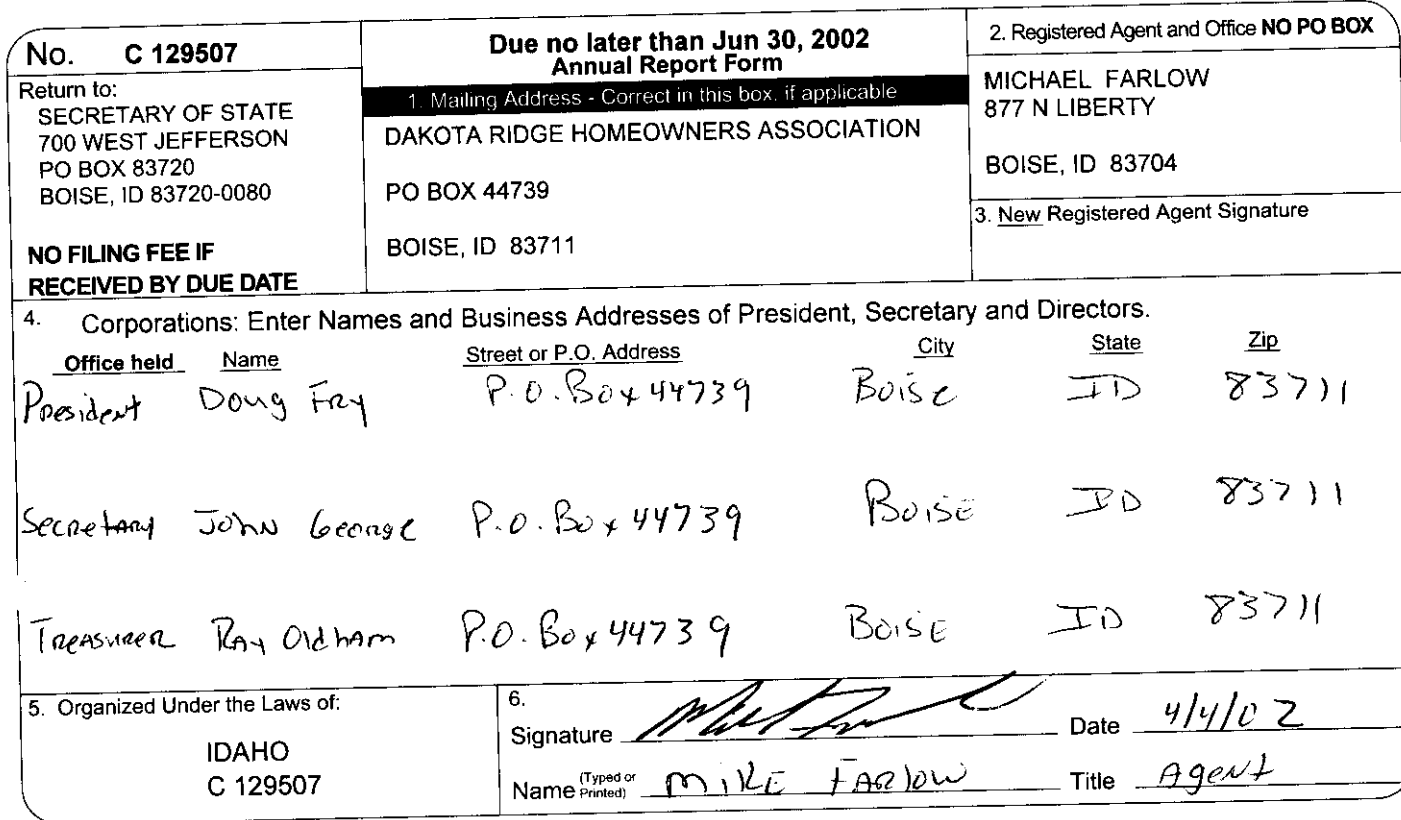 No. C 129507
Return to:
SECRETARY OF STATE
700 WEST JEFFERSON
PO BOX 83720
BOISE, ID 83720-0080
NO FILING FEE IF
RECEIVED BY DUE DATE
Due no later than Jun 30, 2002
Annual Report Form
1. Mailing Address - Correct in this box, if applicable
DAKOTA RIDGE HOMEOWNERS ASSOCIATION
PO BOX 44739
BOISE, ID 83711
2. Registered Agent and Office NO PO BOX
MICHAEL FARLOW
877 N LIBERTY
BOISE, ID 83704
3. New Registered Agent Signature
4. Corporations: Enter Names and Business Addresses of President, Secretary and Directors.
Office held Name Street or P.O. Address City State Zip
President Doug Fry P.O. Box 44739 Boise ID 83711
Secretary John George P.O. Box 44739 Boise ID 83711
Treasurer Ray Oldham P.O. Box 44739 Boise ID 83711
5. Organized Under the Laws of:
IDAHO
C 129507
6.
Signature Date 4/4/02
Name (Typed or Printed) Mike Farlow Title Agent